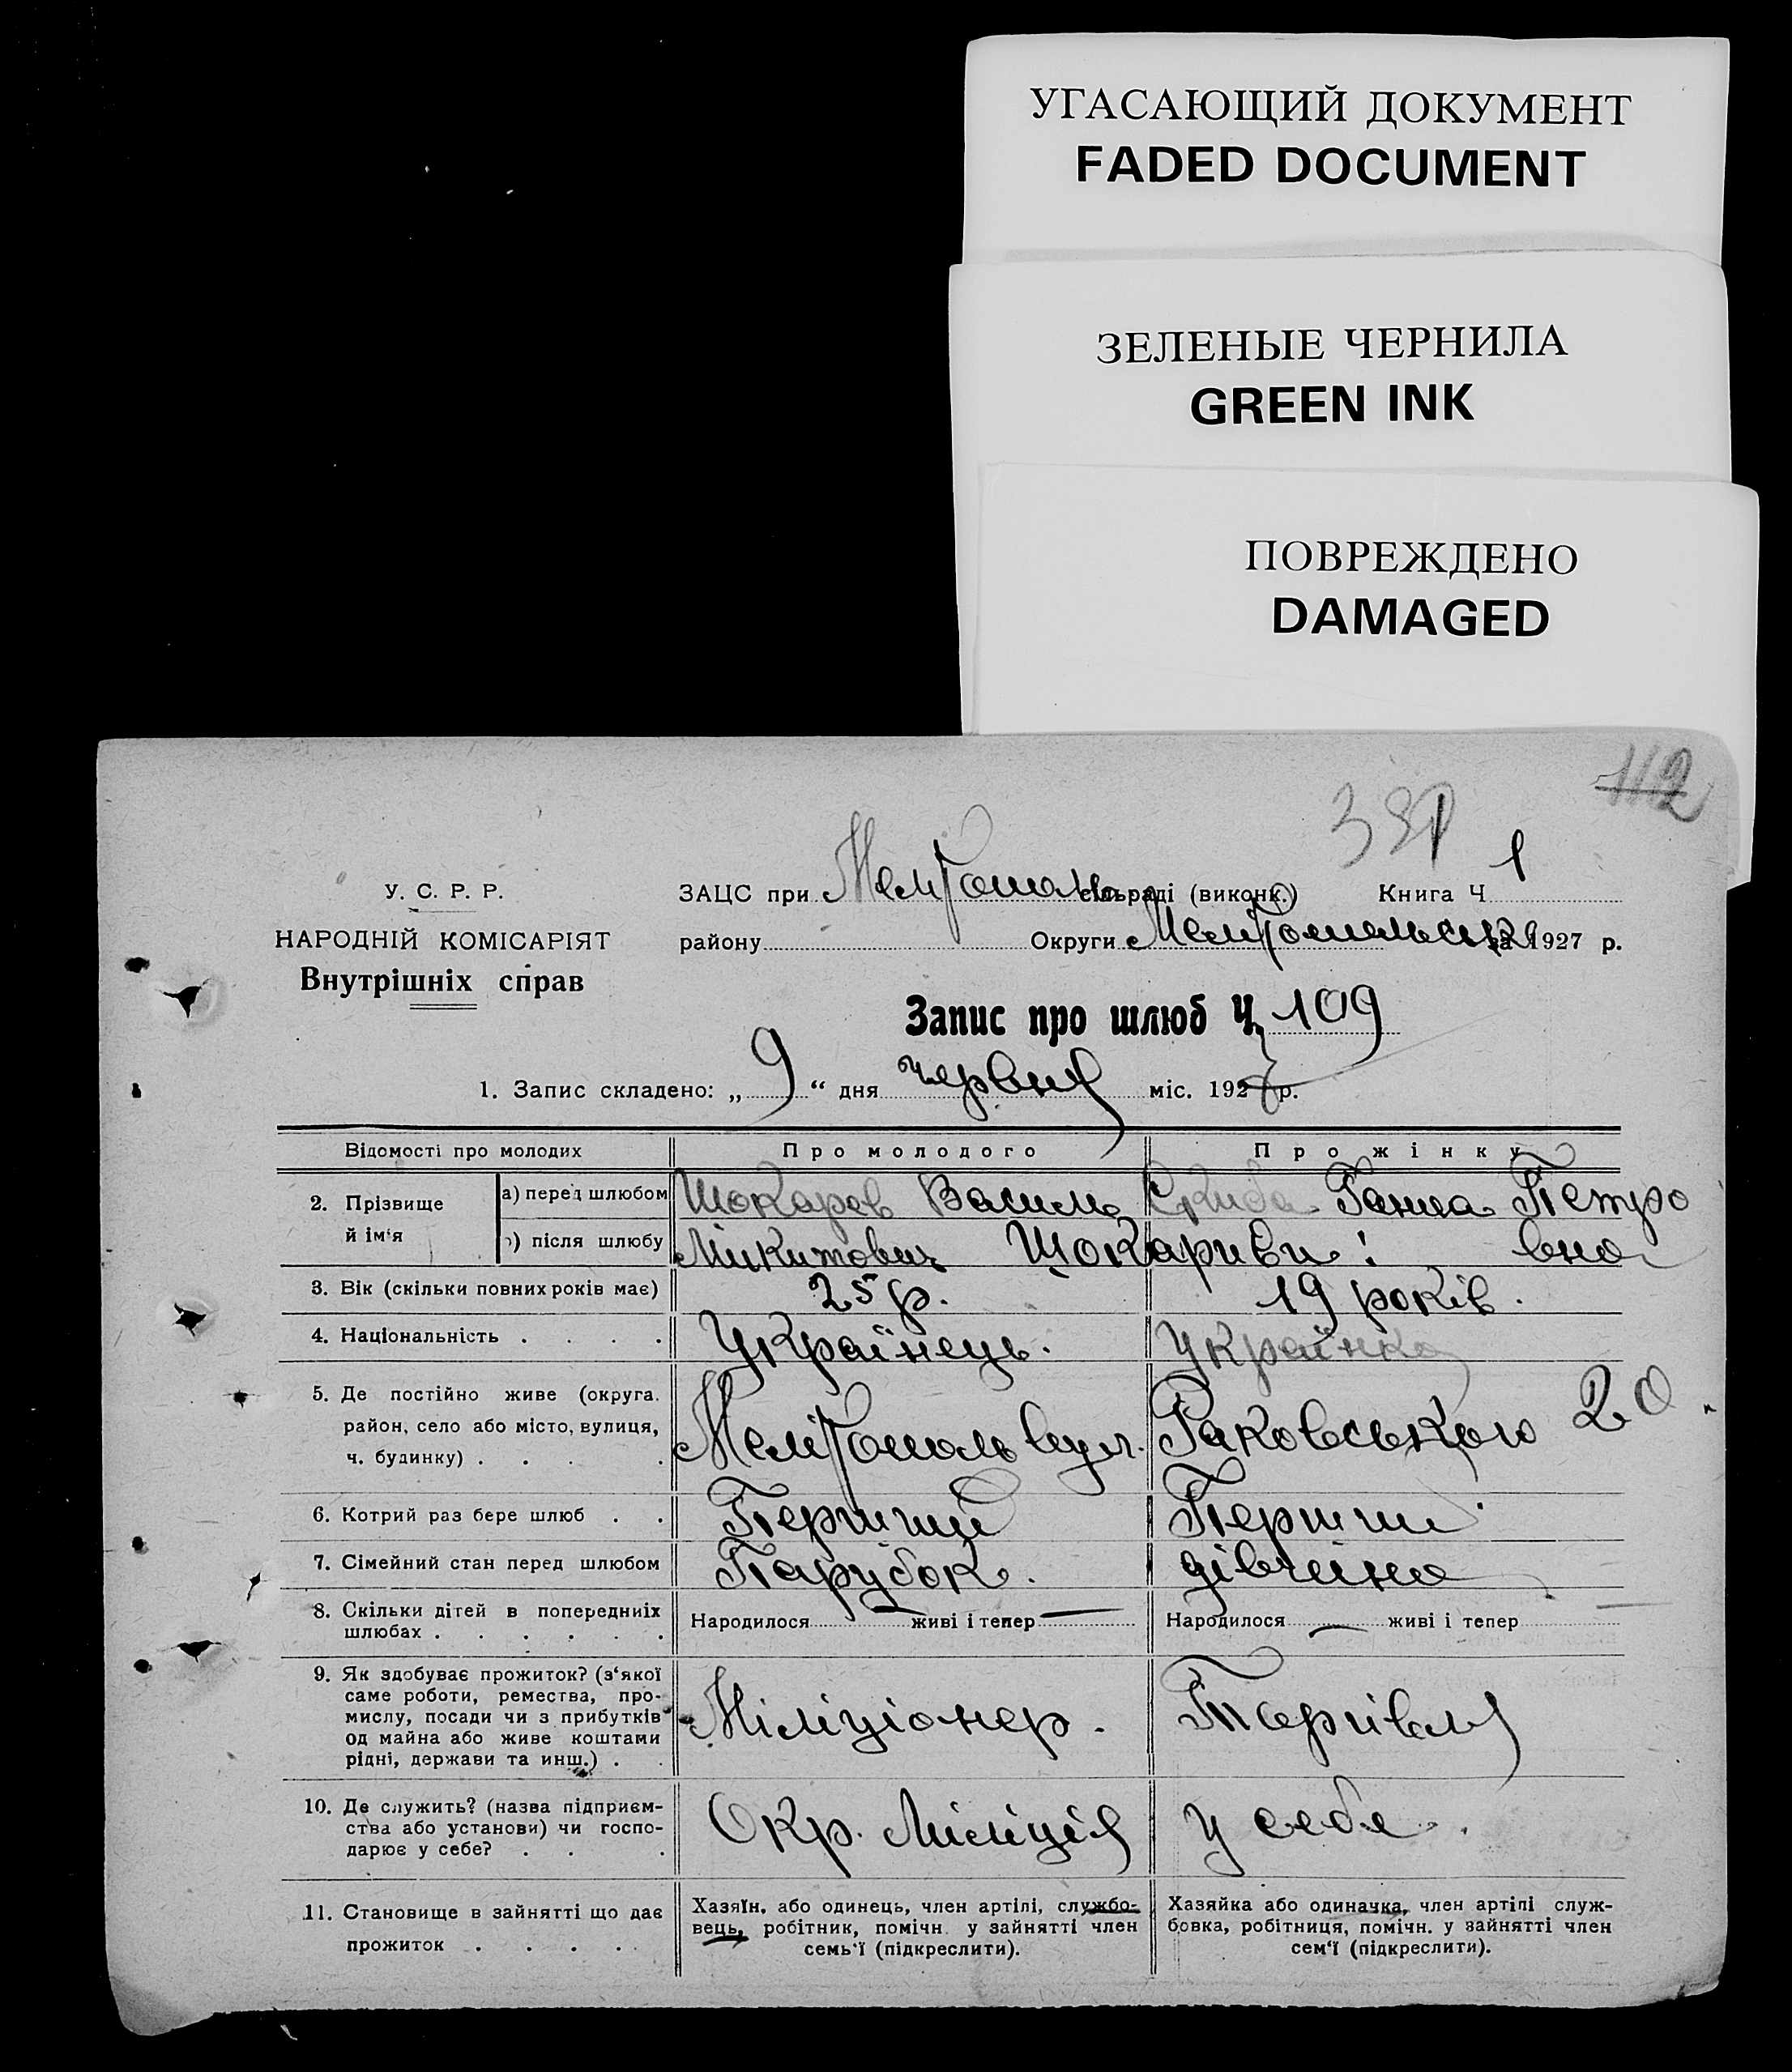 УГАСАЮЩИЙ ДОКУМЕНТ
FADED DOCUMENT
ЗЕЛЕНЫЕ ЧЕРНИЛА
GREEN INK
ПОВРЕЖДЕНО
DAMAGED
112
У. С. Р. Р.
НАРОДНІЙ КОМІСАРІЯТ
Внутрішніх справ
ЗАЦС при Мелітополь сільраді (виконк.) Книга Ч 1
району Округи Мелітопольська за 1927 р.
Запис про шлюб Ч. 109
1. Запис складено: „ 9 “ дня червня міс. 1927 р.
Відомості про молодих Про молодого Про жінку
2. Прізвище й ім'я
а) перед шлюбом Шокарев Василь Скиба Ганна Петро
б) після шлюбу Микитович Шокариви! вна
3. Вік (скільки повних років має) 25 р. 19 років.
4. Національність . . . . Українець. Українка
5. Де постійно живе (округа.
район, село або місто, вулиця,
ч. будинку) . . . . Мелітополь вул. Раковського 20
6. Котрий раз бере шлюб . . Перший Перший
7. Сімейний стан перед шлюбом Парубок. дівчина
8. Скільки дітей в попередниіх
шлюбах . . . . . . Народилося живі і тепер — Народилося — живі і тепер
9. Як здобуває прожиток? (з‘якої
саме роботи, ремества, про-
мислу, посади чи з прибутків
од майна або живе коштами
рідні, держави та инш.) . . Міліціонер. Торгівля
10. Де служить? (назва підприєм-
ства або установи) чи госпо-
дарює у себе? . . . Окр. Міліція у себе.
11. Становище в зайнятті що дає
прожиток . . . . .
Хазяїн, або одинець, член артілі, службо-
вець, робітник, помічн. у зайнятті член
семь‘ї (підкреслити).
Хазяйка або одиначка, член артілі служ-
бовка, робітниця, помічн. у зайнятті член
сем‘ї (підкреслити).